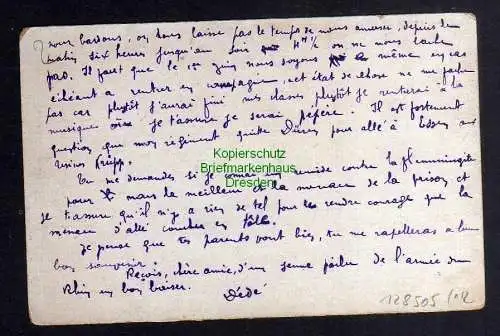 nous bardons, on nous laisse pas le temps de nous amuser, depuis le
matin six heures jusqu'au soir on ne nous lache
pas. Il faut que le 1er Juin nous soyons même en cas
échéant a rentrer en compagnie, cet état de chose ne me
pas car plutôt j'aurai fini mes classes plutôt je rentrerai à la
musique je t'assure je serai pépère. Il est fortement
question que mon régiment quitte Düren pour allé à Essen aux
usines Krupp.
Tu me demandes si je connais un remède contre la flemmingite
pour mais le meilleur est la menace de la prison et
je t'assure qu'il n'y a rien de tel pour les rendre courage que la
menace d'allé coucher en
Je pense que tes parents vont bien, tu me rapelleras a leur
bon souvenir.
Reçois, chère amie, d'un jeune poilu de l'armée du
Rhin un bon baiser.
Dédé
Kopierschutz
Briefmarkenhaus
Dresden
128505